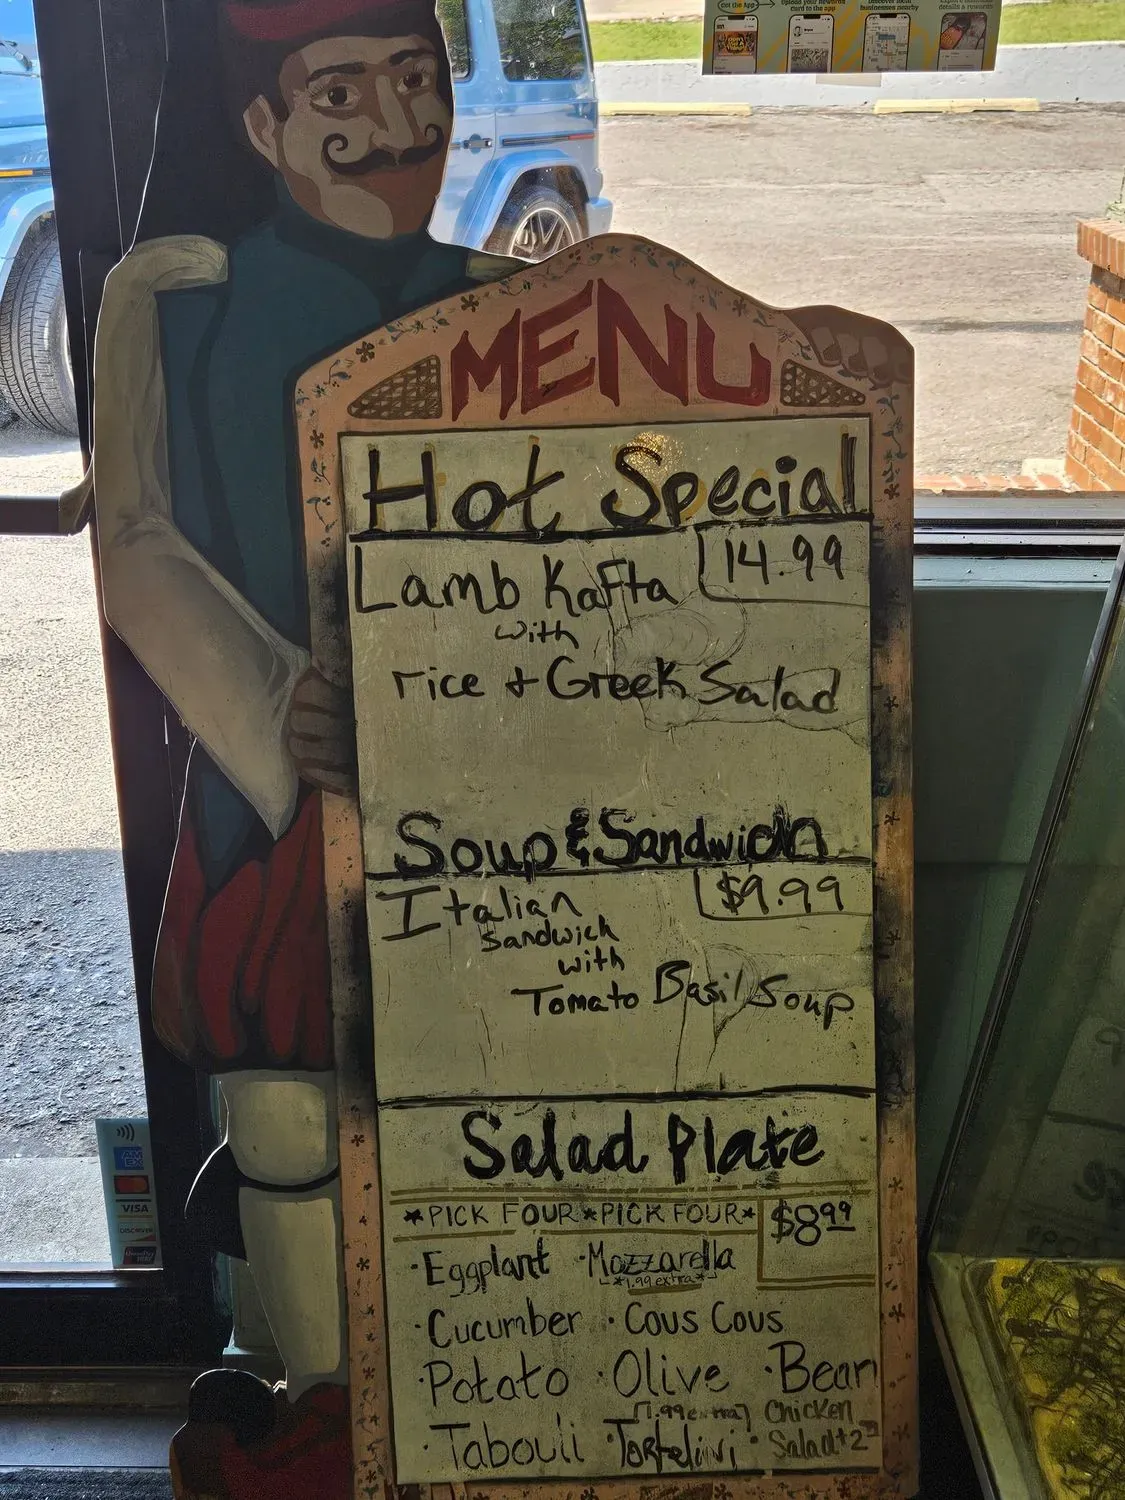 Get the App
MENU
Hot Special
Lamb Kafta 14.99
with
rice + Greek Salad
Soup & Sandwich
Italian $9.99
Sandwich
with
Tomato Basil Soup
Salad Plate
*PICK FOUR*PICK FOUR* $8.99
·Eggplant ·Mozzarella
*1.99 extra*
·Cucumber ·Cous Cous
·Potato ·Olive ·Bean
·Tabouli ·Tortelini
[1.99 extra]
·Chicken
Salad +2
AM
EX
VISA
DISCOVER